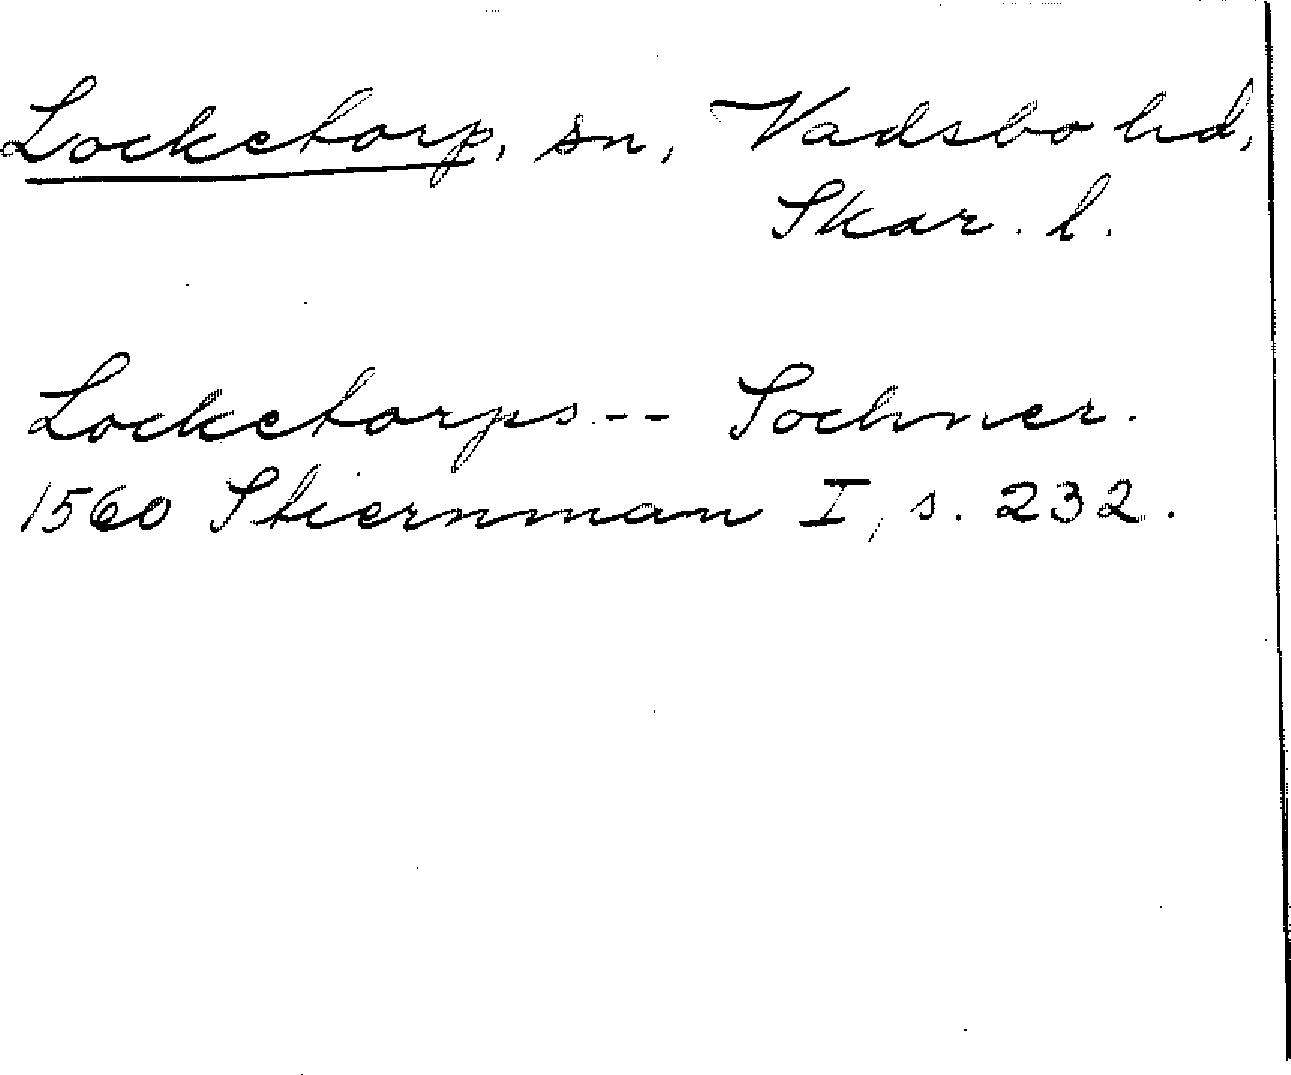 Locketorp, sn, Vadsbo hd,
Skar. l.
Locketorps -- Sochner.
1560 Stiernman I, s. 232.